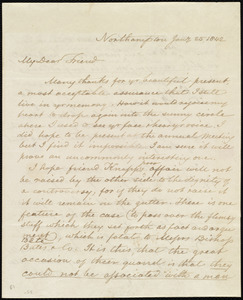 Northampton Jany 25 1842
My Dear Friend
Many thanks for yr beautiful present,
a most acceptable assurance that I still
live in yr memory. How it would rejoice my
heart to drop again into the sunny circle
where I used to see yr face & hear yr voice. I
did hope to be present at the annual meeting
but I find it impossible. I am sure it will
prove an uncommonly interesting one.
I hope friend Knapp's affair will not
be raised by the other side to the dignity of
a controversy, for if they do not raise it
it will remain in the gutter. There is one
feature of the case to pass over the flimsy
stuff which they set forth as fact and argu
ment, which is palat to Messrs Bishop
Bates & Co. It is this that the great
occasion of their quarrel is that they
could not be associated with a man